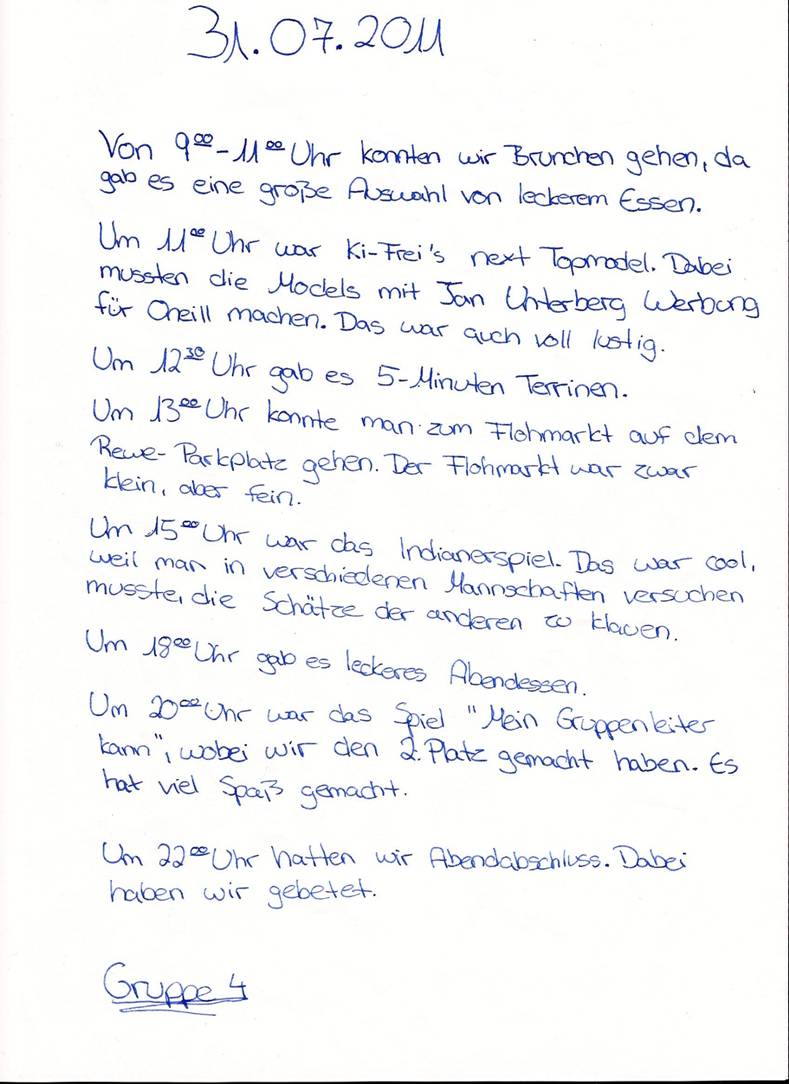 31.07.2011
Von 9⁰⁰-11⁰⁰ Uhr konnten wir Brunchen gehen, da
gab es eine große Auswahl von leckerem Essen.
Um 11⁰⁰ Uhr war Ki-Frei's next Topmodel. Dabei
mussten die Models mit Jan Unterberg Werbung
für Oneill machen. Das war auch voll lustig.
Um 12³⁰ Uhr gab es 5-Minuten Terrinen.
Um 13⁰⁰ Uhr konnte man zum Flohmarkt auf dem
Rewe-Parkplatz gehen. Der Flohmarkt war zwar
klein, aber fein.
Um 15⁰⁰ Uhr war das Indianerspiel. Das war cool,
weil man in verschiedenen Mannschaften versuchen
musste, die Schätze der anderen zu klauen.
Um 18⁰⁰ Uhr gab es leckeres Abendessen.
Um 20⁰⁰ Uhr war das Spiel "Mein Gruppenleiter
kann", wobei wir den 2. Platz gemacht haben. Es
hat viel Spaß gemacht.
Um 22⁰⁰ Uhr hatten wir Abendabschluss. Dabei
haben wir gebetet.
Gruppe 4